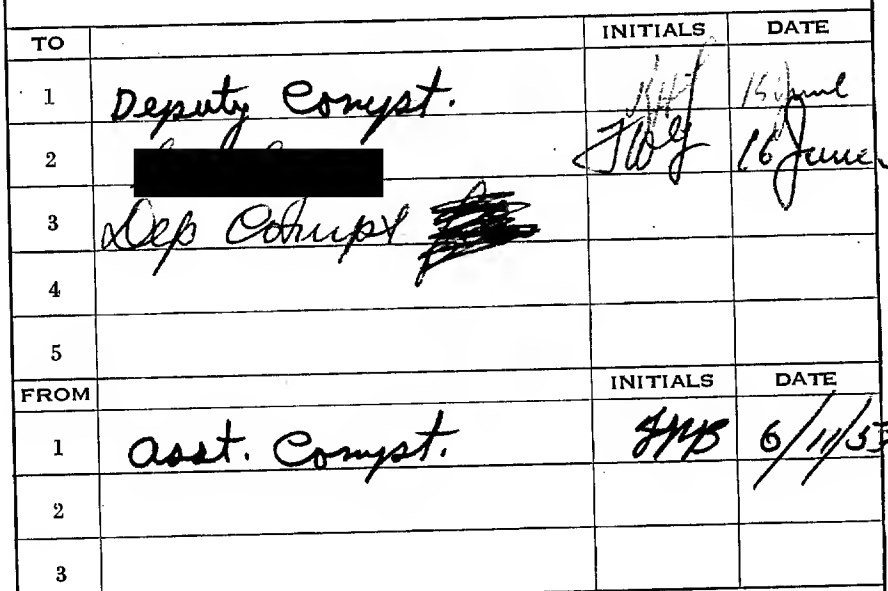 TO INITIALS DATE
1 Deputy Compst. 15 June
2 JWG 16 June
3 Dep Compt
4
5
FROM INITIALS DATE
1 Asst. Compst. 6/11/53
2
3